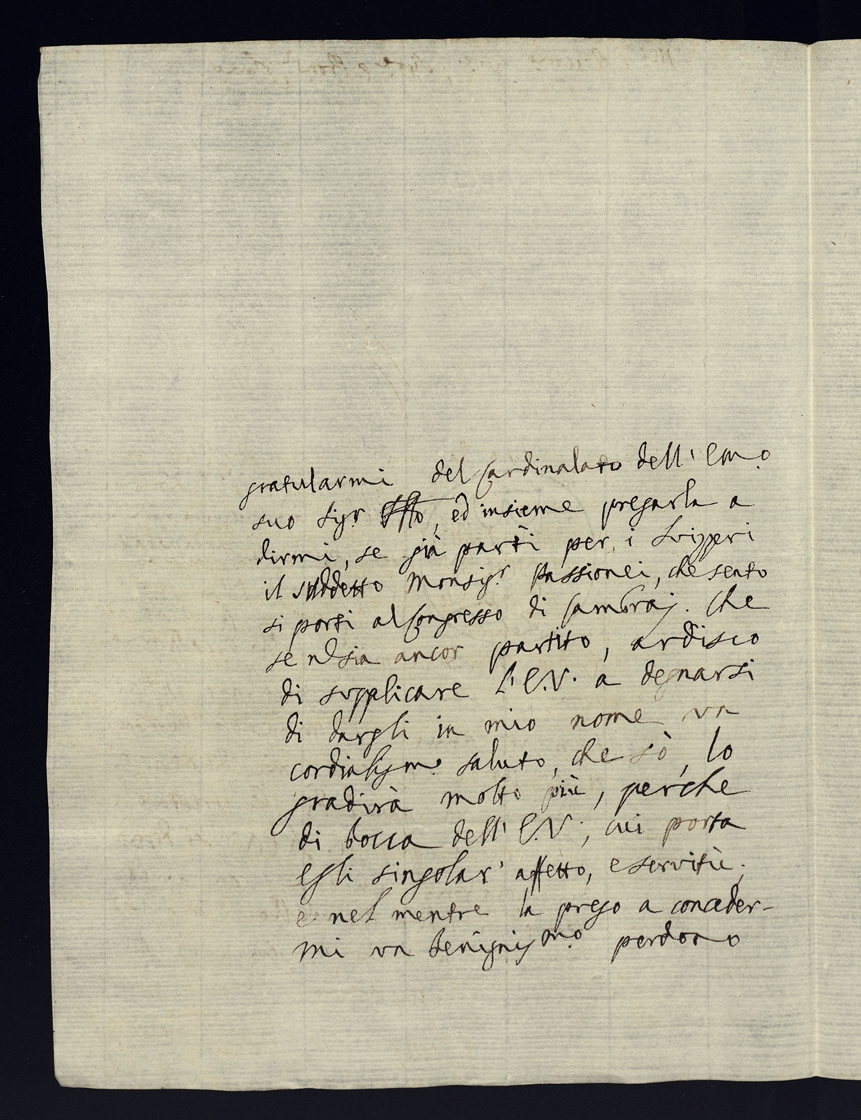 gratularmi del Cardinalato dell' Em.o
suo Sig.r ed insieme pregarla a
dirmi, se già partì per i Svizzeri
il suddetto Monsig.r Passionei, che sento
si porti al Congresso di Cambraj. Che
se nō sia ancor partito, ardisco
di supplicare l'E.V. a degnarsi
di dargli in mio nome un
cordialissm.o saluto, che sò, lo
gradirà molto più, perche
di bocca dell' E.V., cui porta
egli singolar' affetto, e servitù;
e nel mentre la prego a conceder-
mi un benignissmo perdono